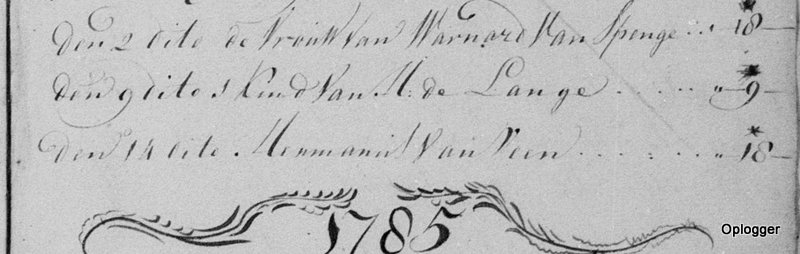 den 2 dito de vrouw van Warnard Van Spenge .. 18 —
den 9 dito 1 kind Van H: de Lange . . . . . „ 9 —
den 14 dito Hermanus Van Veen . . . . . . „ 18 —
1785
Oplogger